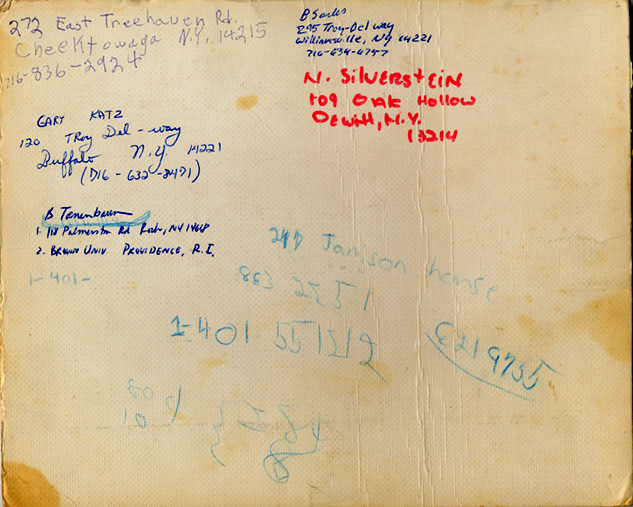 272 East Treehaven Rd.
Cheektowaga N.Y. 14215
716-836-2924
B Sacks
295 Troy-Del way
Williamsville, NY 14221
716-634-6757
N. SILVERSTEIN
109 Oak Hollow
DEWITT, N.Y.
13214
GARY KATZ
120 TRoy Del-way
Buffalo N.Y. 14221
(716-632-8471)
B Tanenbaum
1. Palmerston Rd Roch, NY 14618
2. BROWN UNIV. PROVIDENCE, R.I.
1-401-
Jamison house
863 2251
1-401 5551212